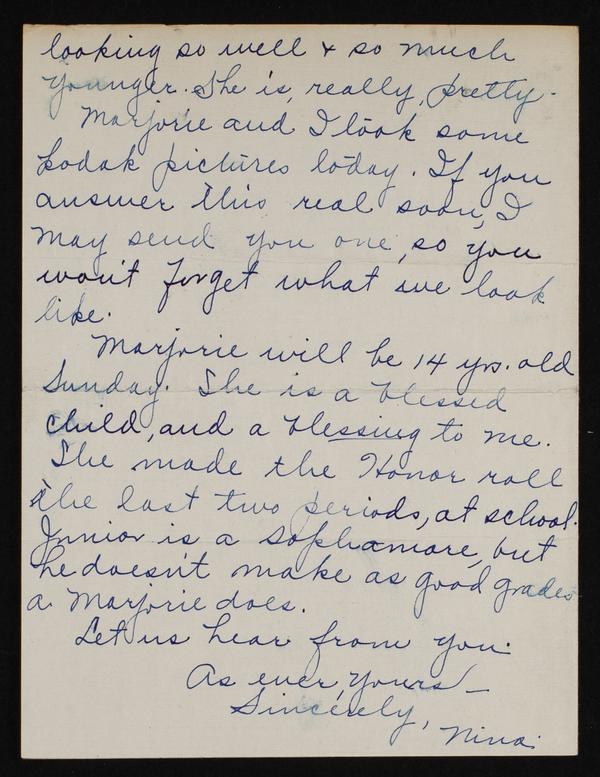 looking so well & so much
younger. She is, really, pretty.
Marjorie and I took some
kodak pictures today. If you
answer this real soon, I
may send you one, so you
won't forget what we look
like.
Marjorie will be 14 yrs. old
Sunday. She is a blessed
child, and a blessing to me.
She made the Honor roll
the last two periods, at school.
Junior is a sophamore, but
he doesn't make as good grades
a Marjorie does.
Let us hear from you.
As ever, yours –
Sincerely,
Nina.